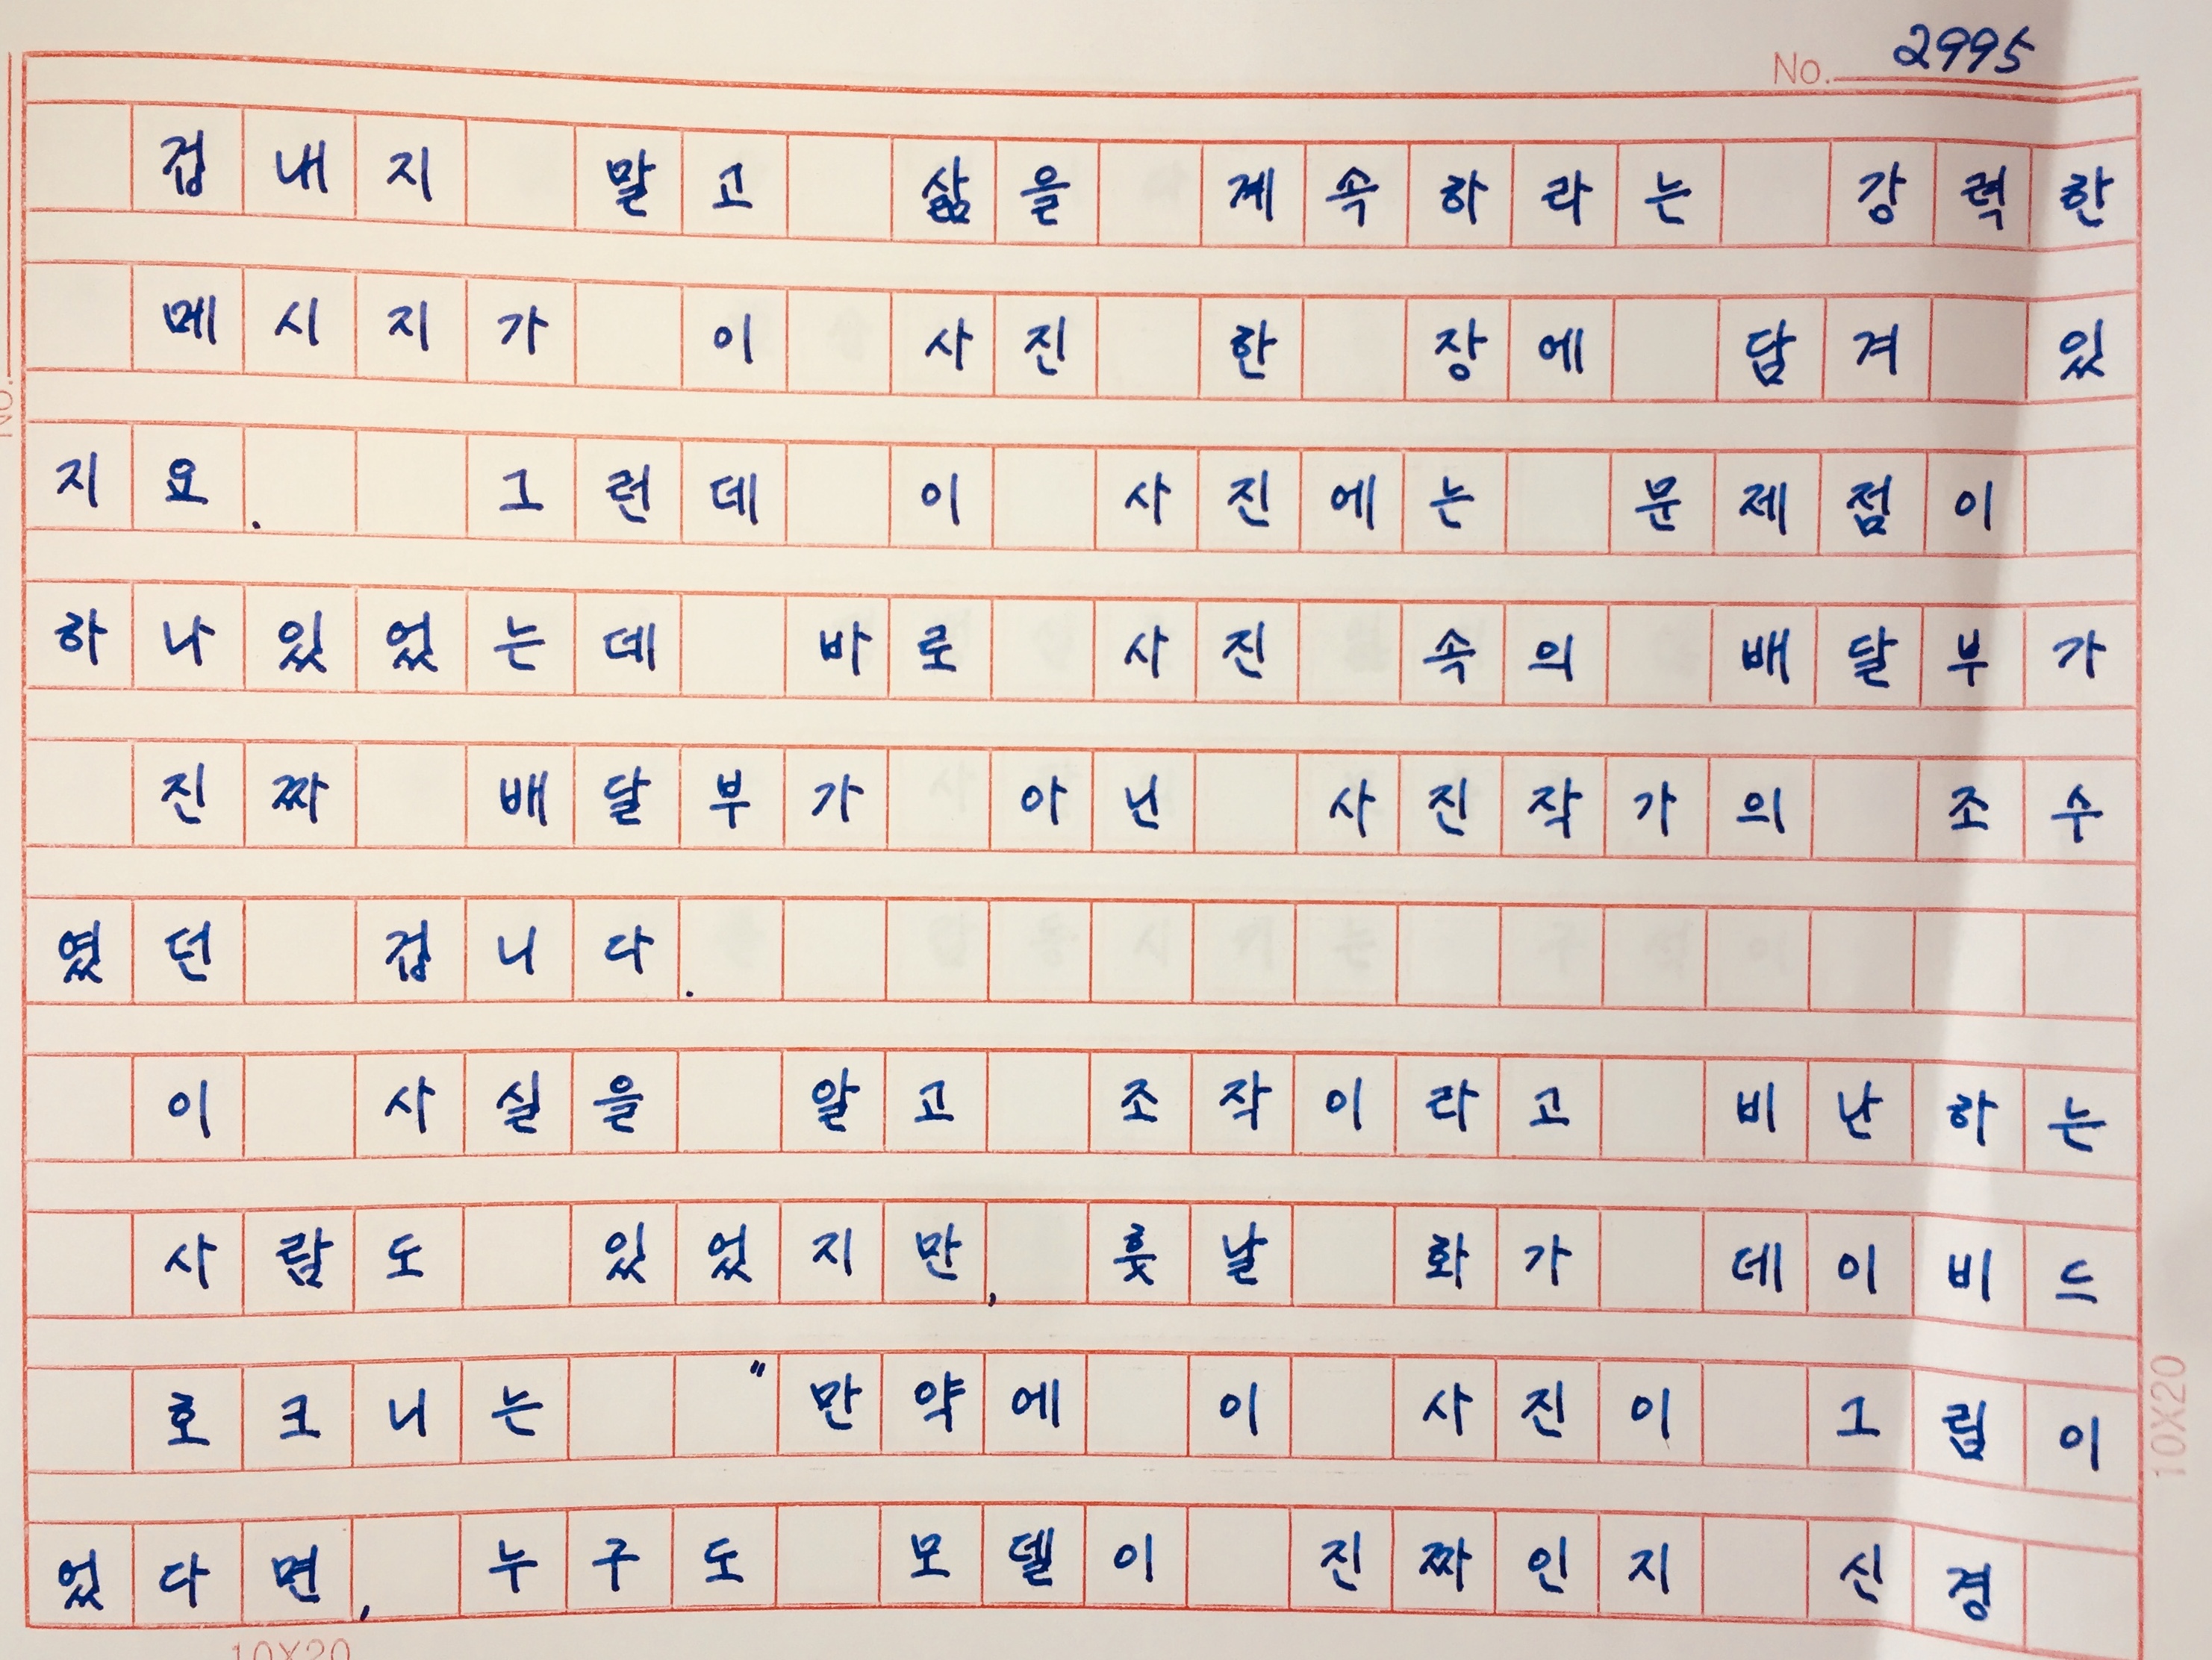 No. 2995
겁내지 말고 삶을 계속하라는 강력한
메시지가 이 사진 한 장에 담겨 있
지요. 그런데 이 사진에는 문제점이
하나있었는데 바로 사진 속의 배달부가
진짜 배달부가 아닌 사진작가의 조수
였던 겁니다.
이 사실을 알고 조작이라고 비난하는
사람도 있었지만, 훗날 화가 데이비드
호크니는 "만약에 이 사진이 그림이
었다면, 누구도 모델이 진짜인지 신경
10X20
10X20
No.